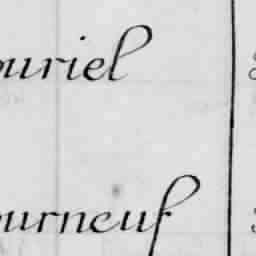 ouriel
ourneuf